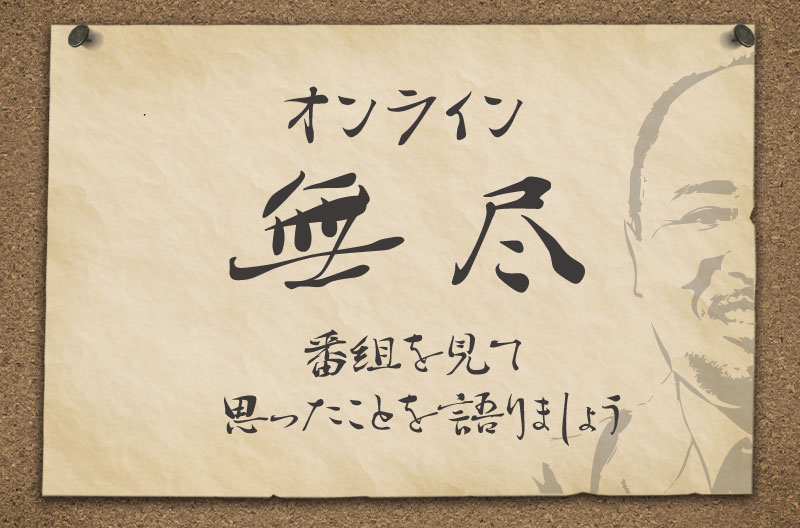 オンライン
無尽
番組を見て
思ったことを語りましょう